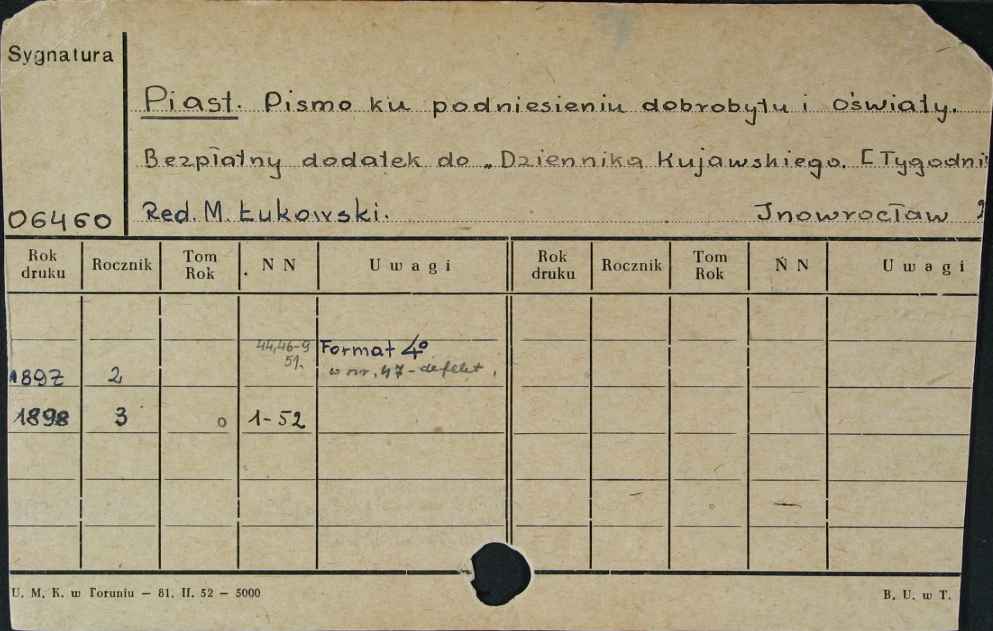 Sygnatura
Piast. Pismo ku podniesieniu dobrobytu i oświaty.
Bezpłatny dodatek do „Dziennika Kujawskiego. [Tygodni
06460 Red. M. Łukowski. Inowrocław
Rok druku Rocznik Tom Rok N N U w a g i Rok druku Rocznik Tom Rok N N U w a g i
44,46-9 Format 4º
51. w nr. 47 - defekt.
1897 2
1898 3 1-52
U. M. K. w Toruniu — 81. II. 52 — 5000 B. U. w T.